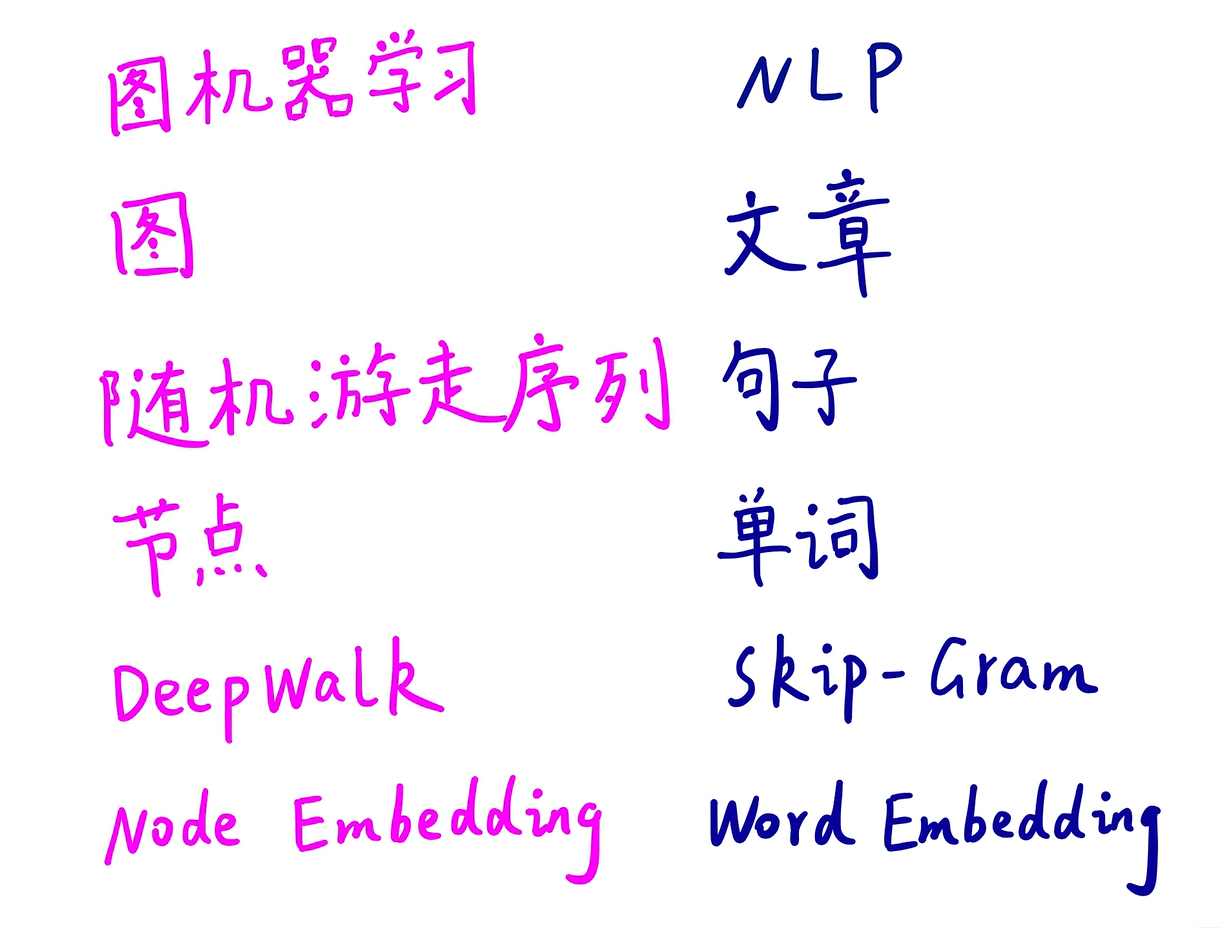 图机器学习 NLP
图 文章
随机游走序列 句子
节点 单词
DeepWalk Skip-Gram
Node Embedding Word Embedding